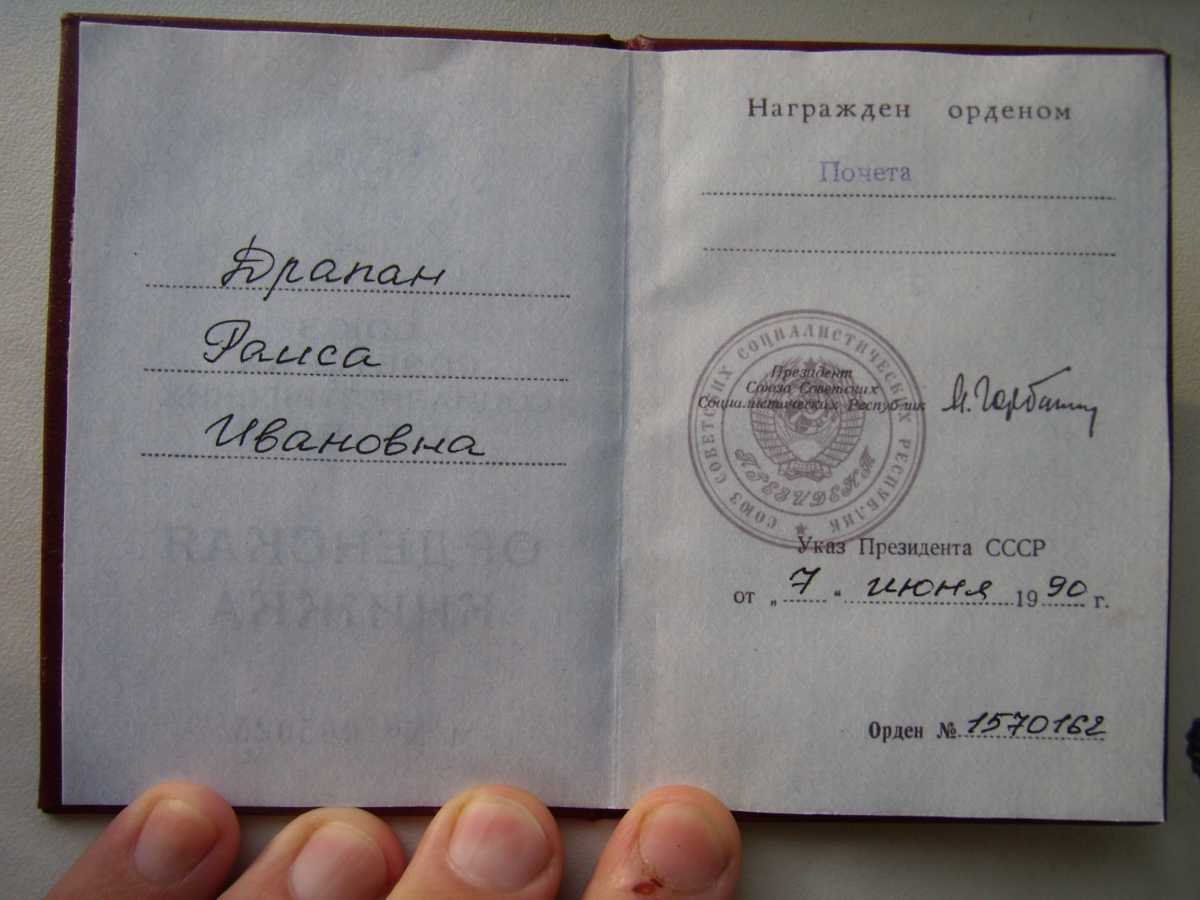 Драпан
Раиса
Ивановна
ОРДЕНСКАЯ
КНИЖКА
Награжден орденом
Почета
СОЮЗ СОВЕТСКИХ СОЦИАЛИСТИЧЕСКИХ РЕСПУБЛИК
ПРЕЗИДЕНТ
Президент
Союза Советских
Социалистических Республик
М. Горбачев
Указ Президента СССР
от „7“ июня 1990 г.
Орден № 1570162